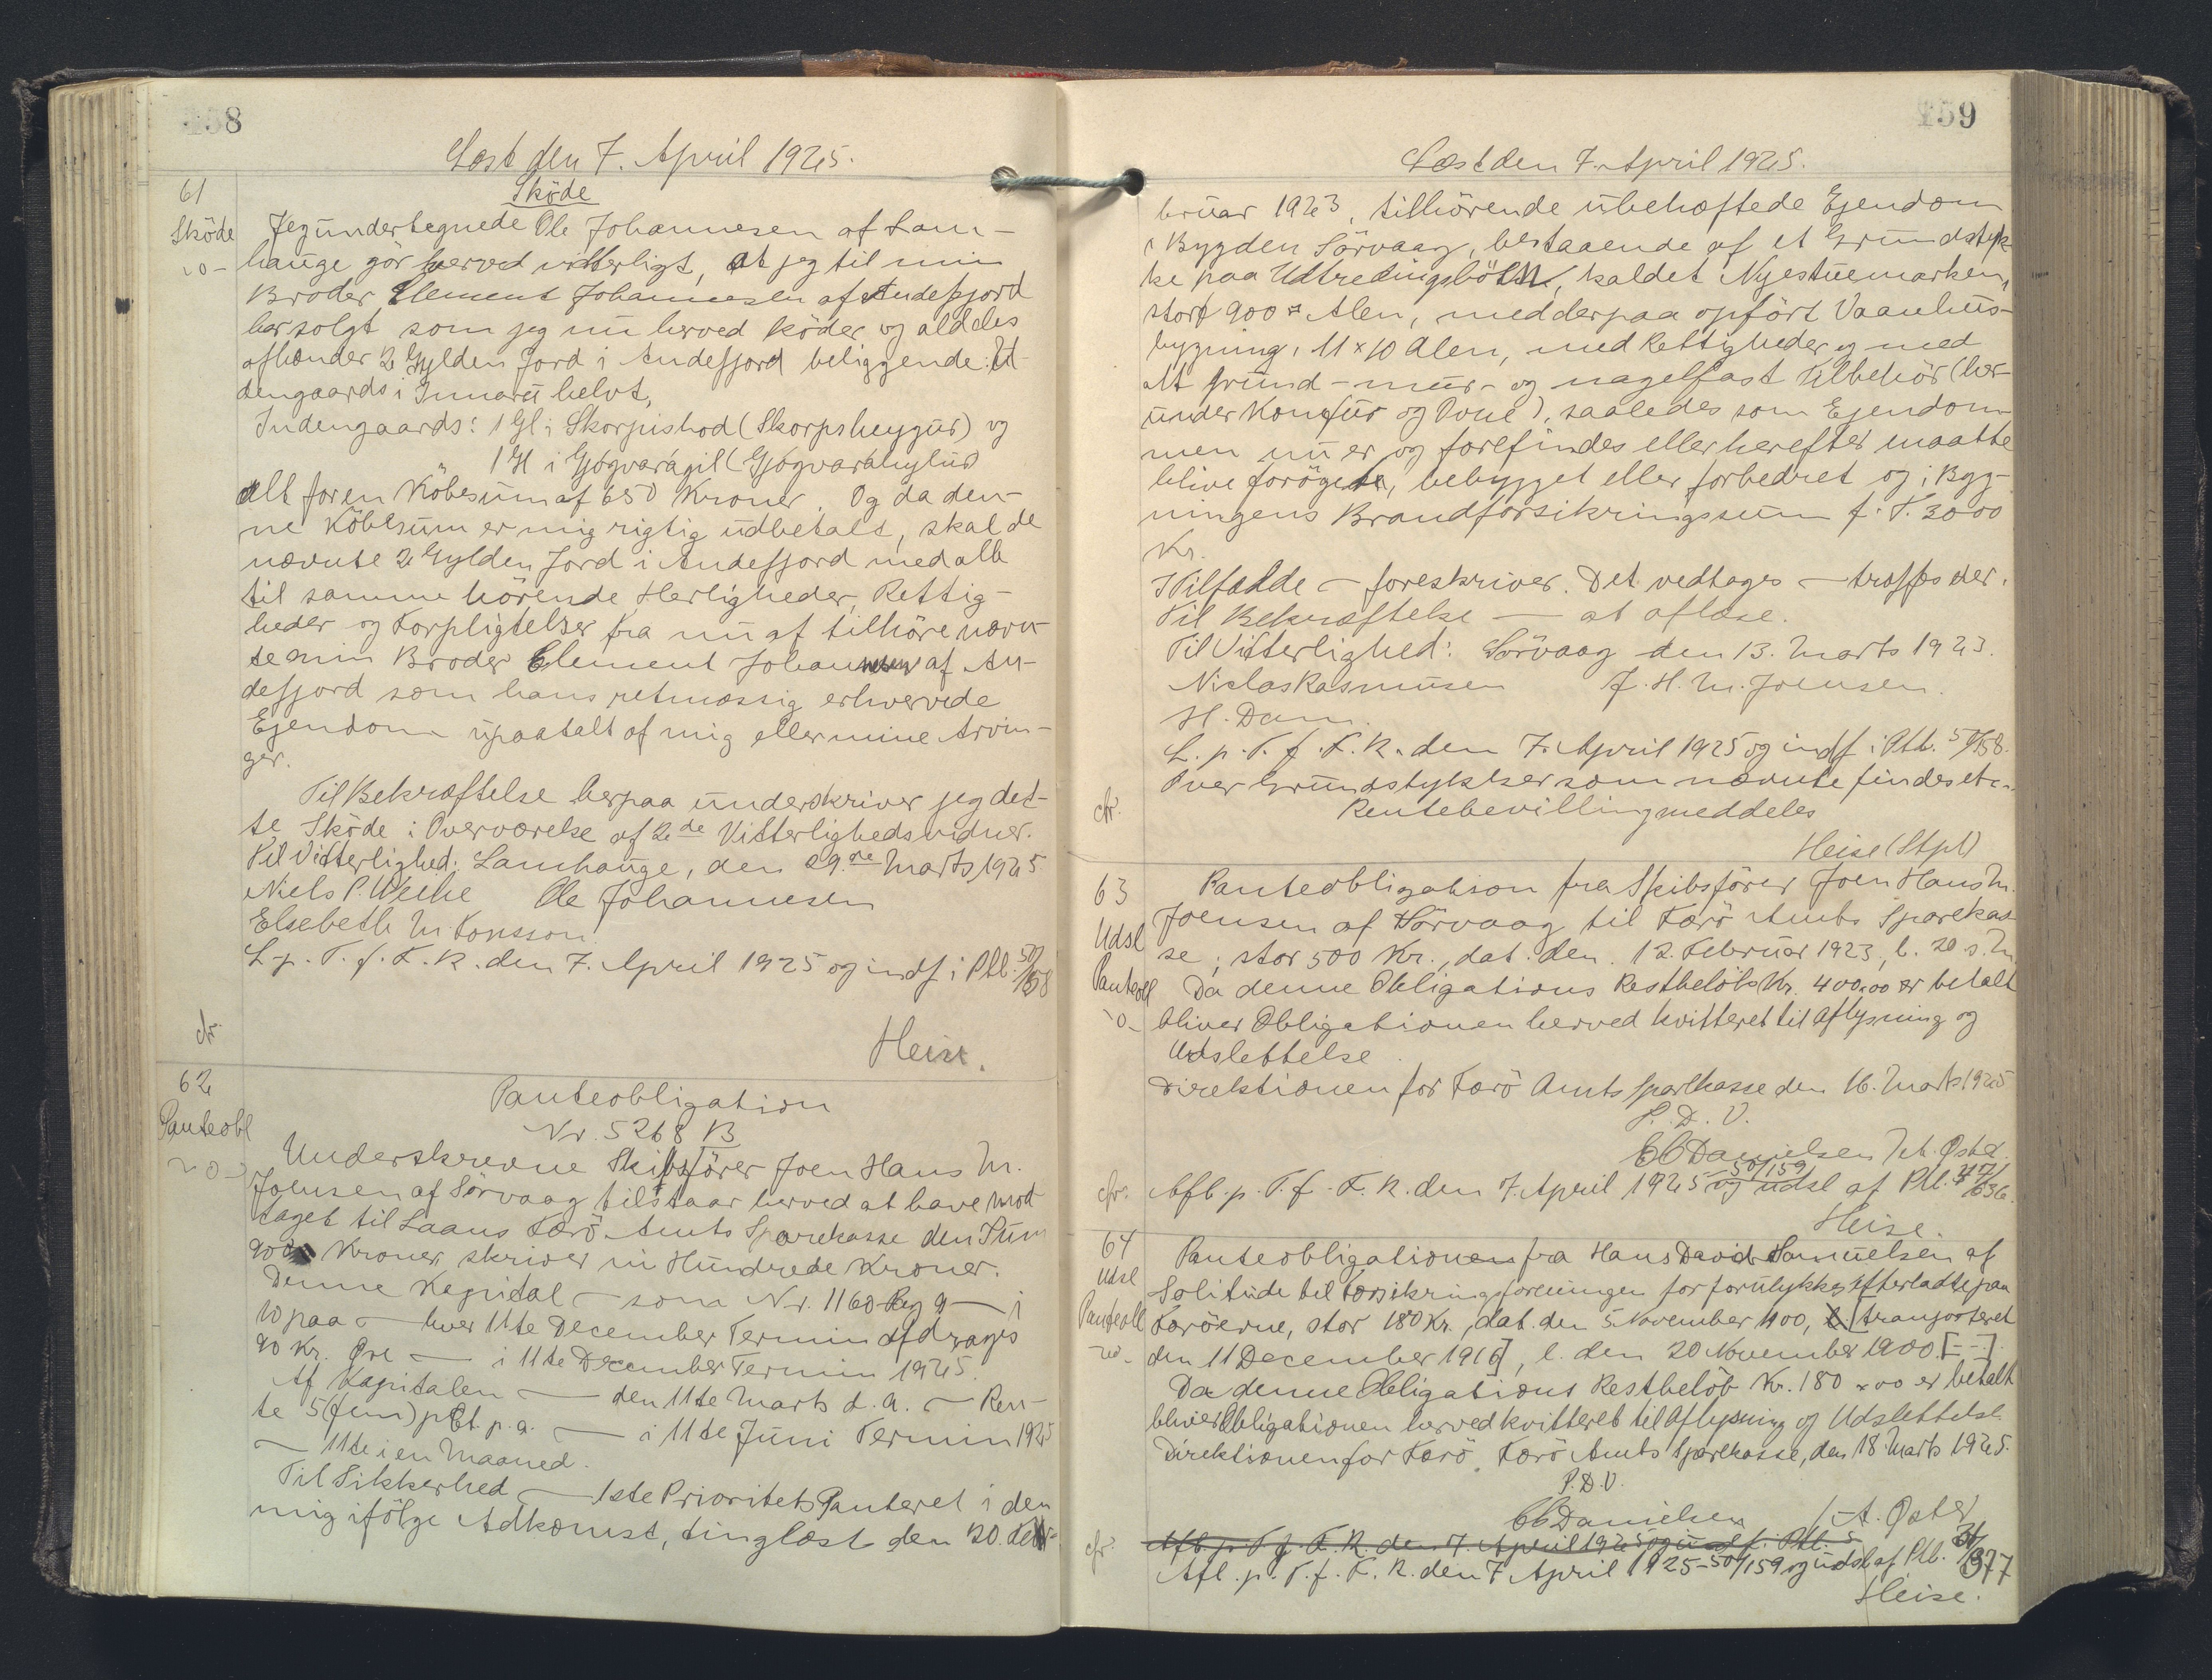 158
Læst den 7. April 1925.
61
Sköde
Sköde
Jeg undertegnede Ole Johannesen af Lam-
hauge gör herved vitterligt, at jeg til min
Broder Clement Johannesen af Andefjord
har solgt som jeg nu herved sköder og aldeles
afhænder 2 Gylden Jord i Andefjord beliggende: Ud-
dengaards i Innaru helvt,
Indengaards: 1 Gl. i Skorpishod (Skorpsheygur) og
1 Gl i Gjógvarágil (Gjógvaráhylur)
alt for en Köbesum af 650 Kroner. Og da den-
ne Köbesum er mig rigtig udbetalt, skal de
nævnte 2 Gylden Jord i Andefjord med alle
til samme hörende Herligheder, Rettig-
heder og Forpligtelser fra nu af tilhöre nævn-
te min Broder Clement Johannesen af An-
defjord som hans retmæssig erhvervede
Ejendom upaatalt af mig eller mine Arvin-
ger.
Til Bekræftelse herpaa underskriver jeg det-
te Sköde i Overværelse af 2de Vitterlighedsvidner.
Til Vitterlighed: Lamhauge, den 29.de Marts 1925.
Niels P. Weihe Ole Johannesen
Elsebeth M. Konsson
L. p. T. f. F. R. den 7. April 1925 og indf i Ptb. 50/158
cfr.
Heise.
62
Panteobl
Panteobligation
Nr. 5268 B
Underskrevne Skibsförer Joen Hans M.
Joensen af Sörvaag tilstaar herved at have mod-
taget til Laans Færö Amts Sparekasse den Sum
900 Kroner, skriver ni Hundrede Kroner.
Denne Kapital — som Nr. 1160 Reg 9 — i
10 paa — hver 11te December Termin afdrages
90 Kr. Øre — i 11te December Termin 1925.
Af Kapitalen — den 11te Marts d. A. — Ren-
te 5 (fem) pCt. p. a. — i 11te Juni Termin 1925
— 11te i en Maaned.
Til Sikkerhed — 1ste Prioritets Panteret i den
mig ifölge Adkomst, tinglæst den 20. Feb-
159
Læst den 7. April 1925.
bruar 1923, tilhörende ubehæftede Ejendom
i Bygden Sörvaag, bestaaende af et Grundstyk-
ke paa Udtredingsböln, kaldet Nyestuemarken,
stort 900 □ Alen, med derpaa opfört Vaanhus-
bygning, 11 x 10 Alen, med Rettigheder og med
alt grund- mur- og nagelfast Tilbehör (her-
under Komfur og Ovne), saaledes som Ejendom-
men nu er og forefindes eller herefter maatte
blive foröget, bebygget eller forbedret og i Byg-
ningens Brandforsikringssum f. T. 3000
Kr.
I Tilfælde — foreskriver. Det vedtages — træffes der.
Til Bekræftelse — at aflæse.
Til Vitterlighed: Sörvaag den 13. Marts 1923.
Niclas Rasmusen J. H. M. Joensen.
H. Dam.
L. p. T. f. F. R. den 7. April 1925 og indf i Ptb. 50/158.
Over Grundstykket som nævnte findes et-
cfr.
Rentebevilling meddeles
Heise (Stpl)
63
Udsl
Panteobl
Panteobligation fra Skibsförer Joen Hans M.
Joensen af Sörvaag til Færö Amts Sparekas-
se, stor 500 Kr., dat. den. 12. Februar 1923, l. 20 s. M.
Da denne Obligations Restbelöb Kr. 400,00 er betalt
bliver Obligationen herved kvitteret til Aflysning og
Udslettelse.
Direktionen for Færö Amts Sparekasse den 16. Marts 1925
P. D. V.
C C Danielsen / A. Øster
cfr.
Afl. p. T. f. F. R. den 7. April 1925 50/159 og udsl af Ptb. 47/636.
Heise.
64
Udsl
Panteobl
Panteobligationen fra Hans David Samuelsen af
Solitude til Forsikringsforeningen for forulykkes Efterladte paa
Færöerne, stor 180 Kr., dat. den 5 November 1900, [transporteret
den 11 December 1916], l. den 20 November 1900. [- -]
Da denne Obligations Restbelöb Kr. 180,00 er betalt
bliver Obligationen herved kvitteret til Aflysning og Udslettelse.
Direktionen for Færö Færö Amts Sparekasse, den 18. Marts 1925.
P. D. V.
C C Danielsen / A. Øster
cfr.
Afl. p. T. f. F. R. den 7 April 1925 og indf i Ptb. 5
Afl. p. T. f. F. R. den 7 April 1925 - 50/159 og udsl af Ptb. 31/377
Heise.